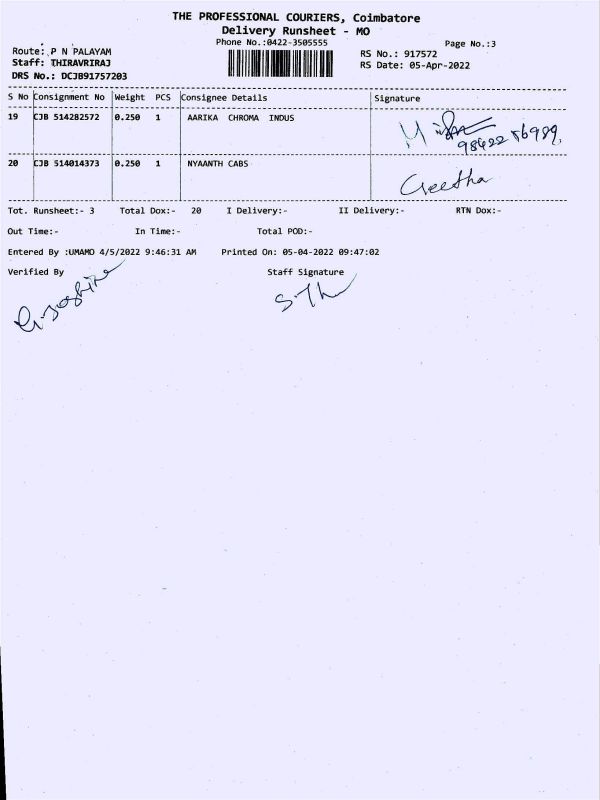 THE PROFESSIONAL COURIERS, Coimbatore
Delivery Runsheet - MO
Phone No.:0422-3505555
Page No.:3
Route: P N PALAYAM
RS No.: 917572
Staff: THIRAVRIRAJ
RS Date: 05-Apr-2022
DRS No.: DCJB91757203
S No Consignment No Weight PCS Consignee Details Signature
19 CJB 514282572 0.250 1 AARIKA CHROMA INDUS
20 CJB 514014373 0.250 1 NYAANTH CABS
Geetha
Tot. Runsheet:- 3 Total Dox:- 20 I Delivery:- II Delivery:- RTN Dox:-
Out Time:- In Time:- Total POD:-
Entered By :UMAMO 4/5/2022 9:46:31 AM Printed On: 05-04-2022 09:47:02
Verified By Staff Signature